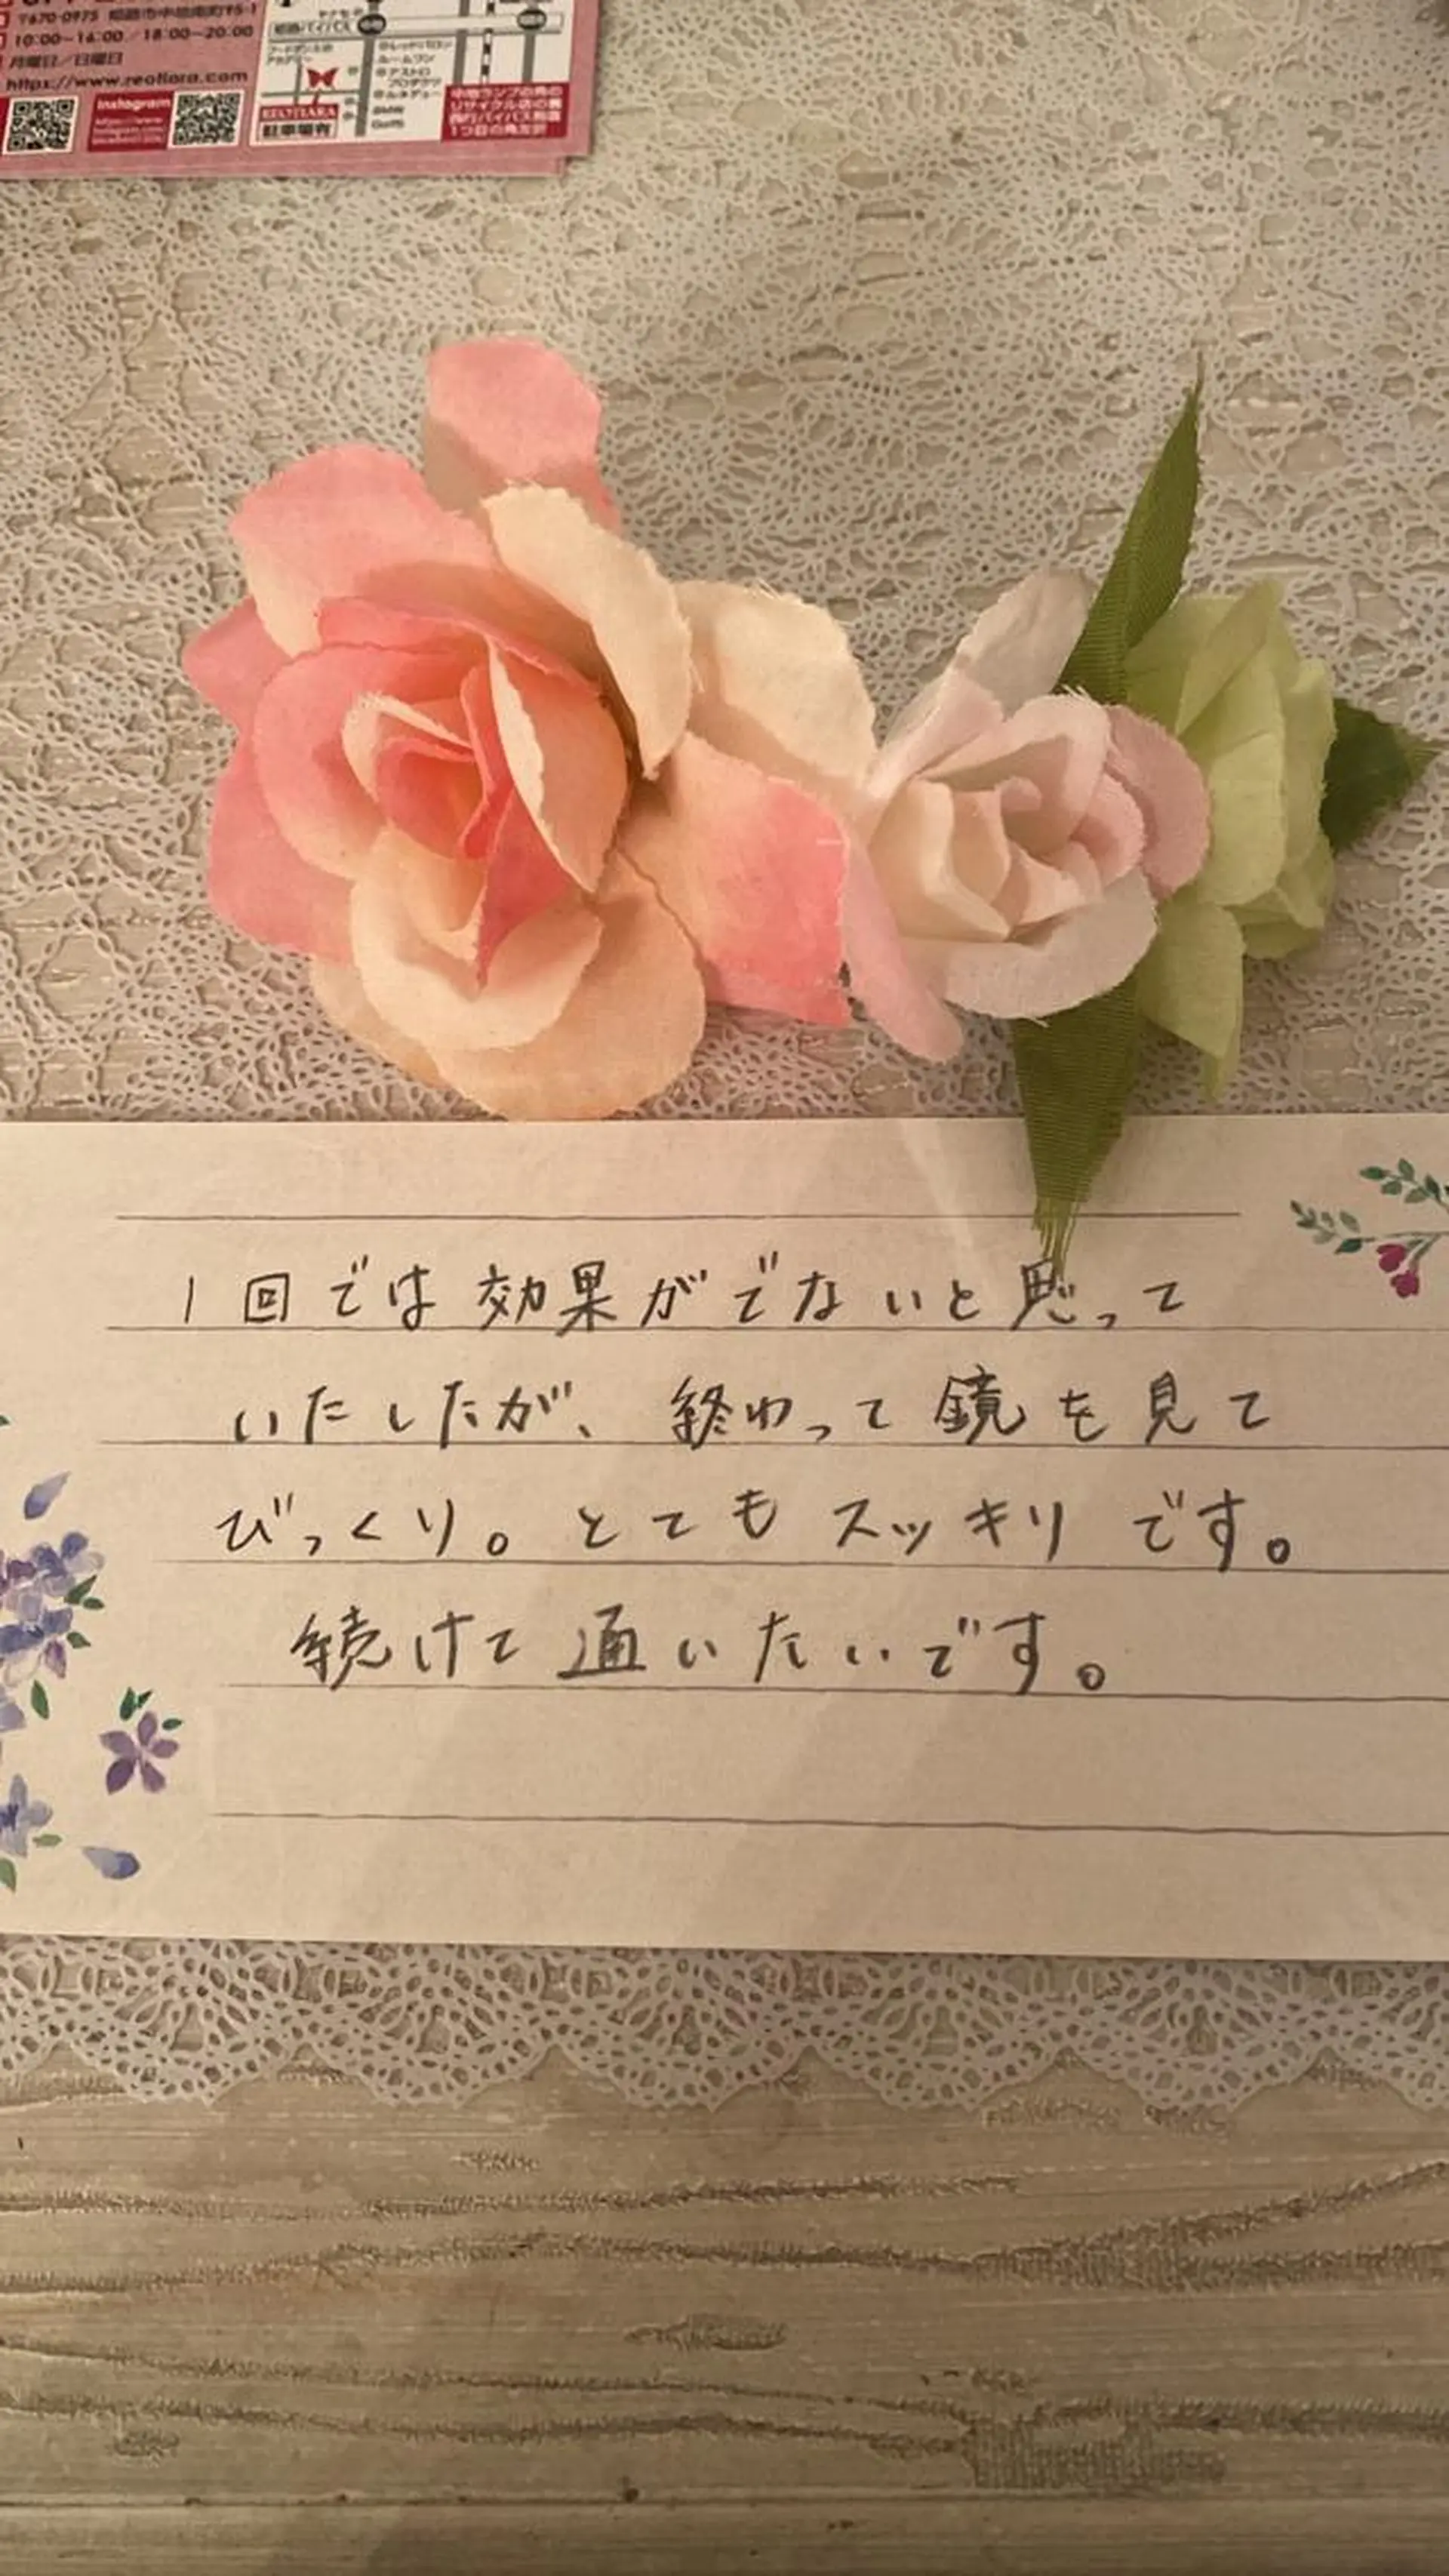 〒670-0975 姫路市中地南町95-1
10:00〜16:00／18:00〜20:00
月曜日／日曜日
https://www.reotiara.com
Instagram
姫路バイパス
REOTIARA
駐車場有
1回では効果がでないと思って
いたしたが、終わって鏡を見て
びっくり。とてもスッキリです。
続けて通いたいです。